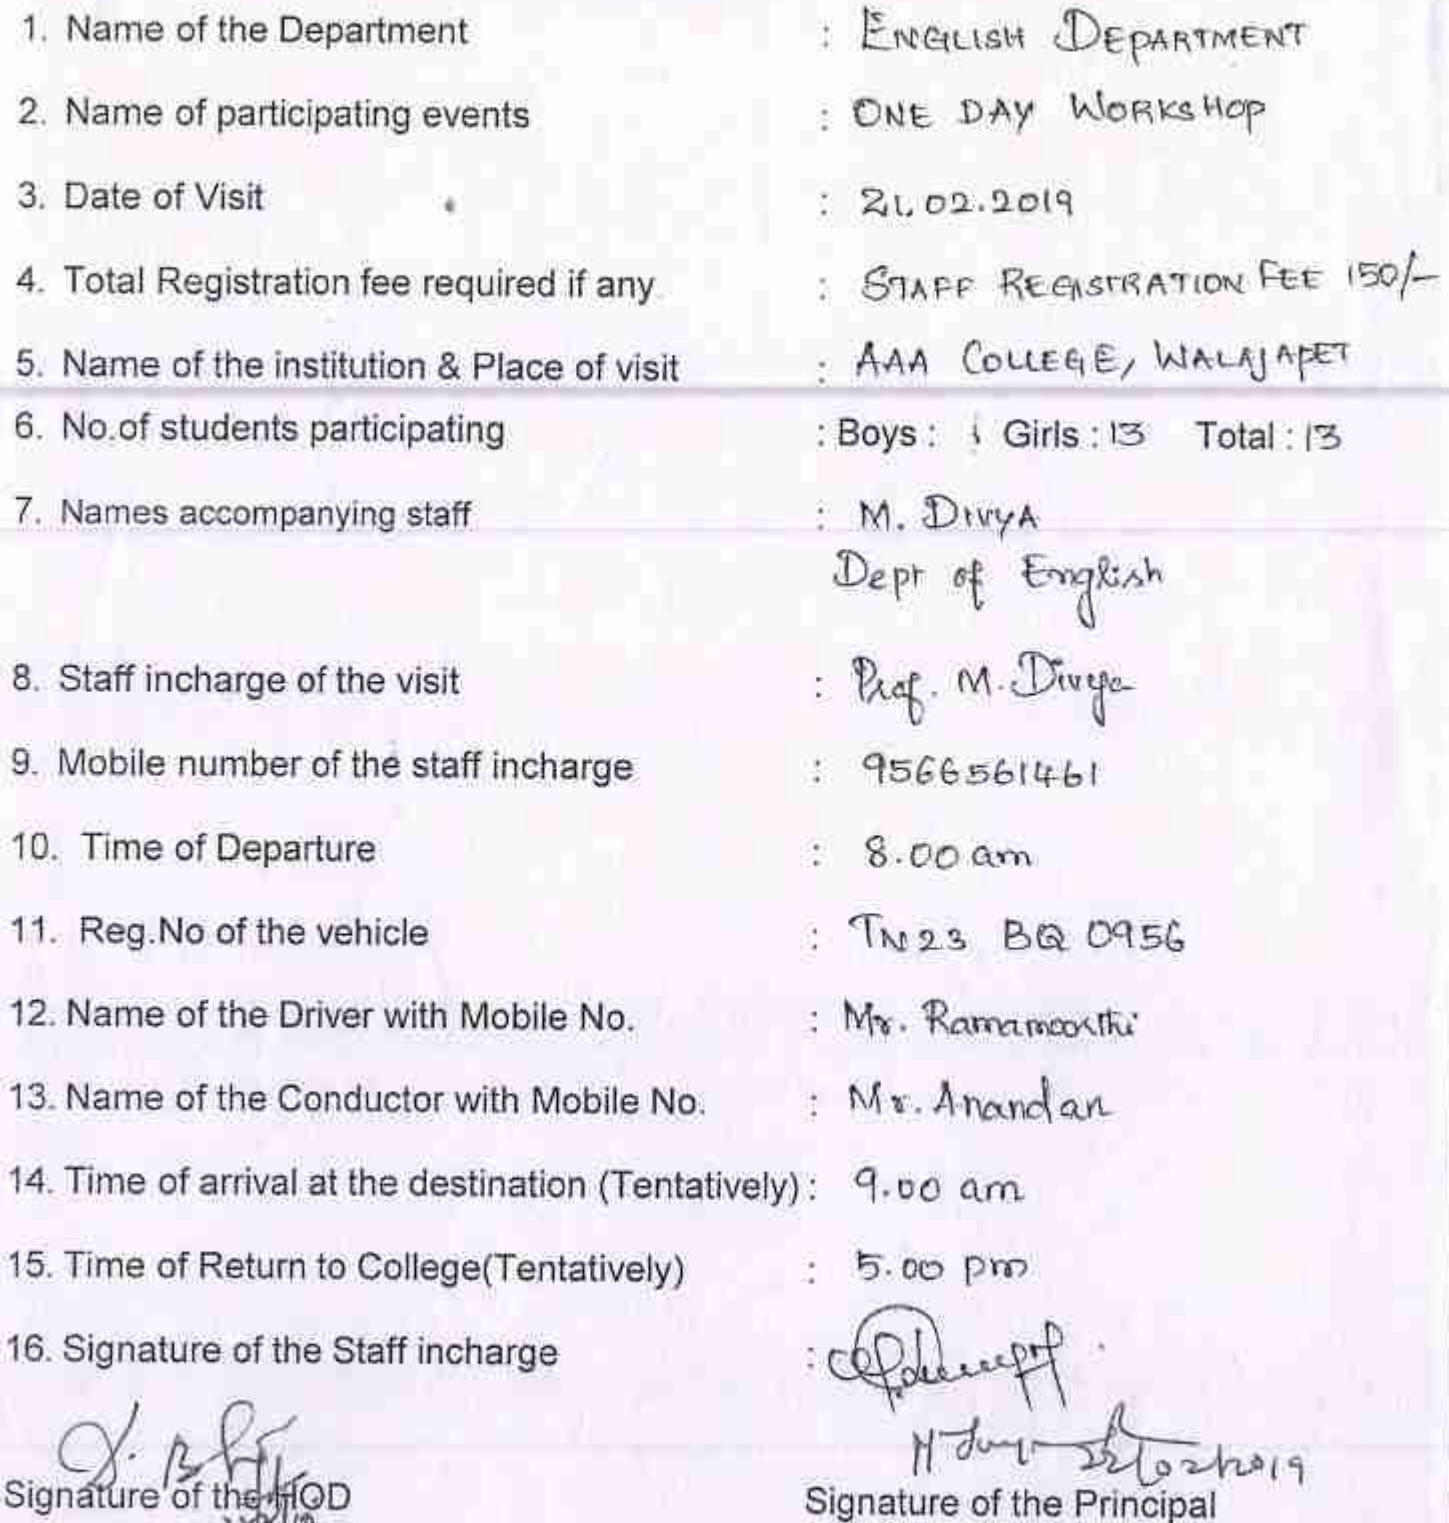 1. Name of the Department : ENGLISH DEPARTMENT
2. Name of participating events : ONE DAY WORKSHOP
3. Date of Visit : 21.02.2019
4. Total Registration fee required if any : STAFF REGISTRATION FEE 150/-
5. Name of the institution & Place of visit : AAA COLLEGE, WALAJAPET
6. No.of students participating : Boys : Girls : 13 Total : 13
7. Names accompanying staff : M. DIVYA
Dept of English
8. Staff incharge of the visit : Prof. M. Divya
9. Mobile number of the staff incharge : 9566561461
10. Time of Departure : 8.00 am
11. Reg.No of the vehicle : TN23 BQ 0956
12. Name of the Driver with Mobile No. : Mr. Ramamoorthi
13. Name of the Conductor with Mobile No. : Mr. Anandan
14. Time of arrival at the destination (Tentatively) : 9.00 am
15. Time of Return to College(Tentatively) : 5.00 pm
16. Signature of the Staff incharge :
22/02/2019
Signature of the HOD Signature of the Principal